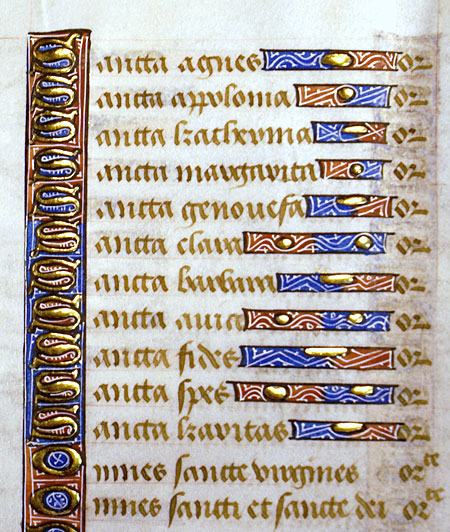 Sancta agnes or
Sancta appolonia or
Sancta katherina or
Sancta margarita or
Sancta genouefa or
Sancta clara or
Sancta barbara or
Sancta auia or
Sancta fides or
Sancta spes or
Sancta karitas or
Omnes sancte virgines orte
Omnes sancti et sancte dei orte